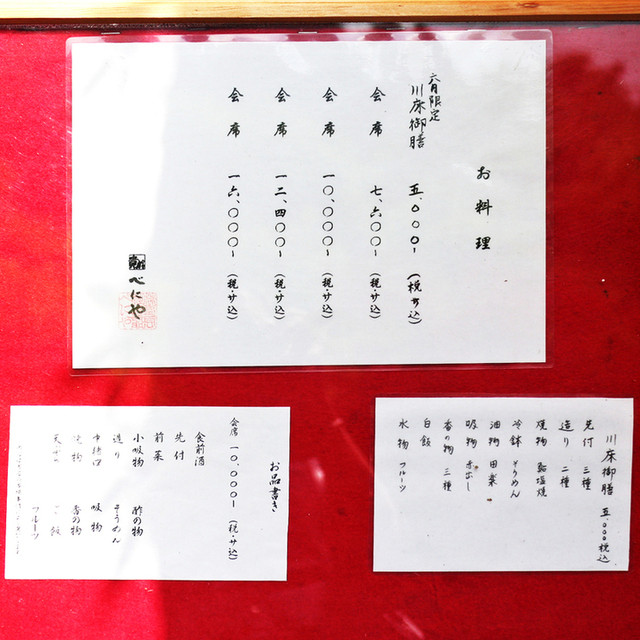 お料理
六月限定
川床御膳 五、〇〇〇~ (税サ込)
会席 七、六〇〇~ (税・サ込)
会席 一〇、〇〇〇~ (税・サ込)
会席 一二、四〇〇~ (税・サ込)
会席 一六、〇〇〇~ (税・サ込)
べにや
お品書き
会席 一〇、〇〇〇~ (税・サ込)
食前酒
先付
前菜
小吸物 酢の物
造り そうめん
中猪口 吸物
焼物 香の物
ご飯
フルーツ
川床御膳 五、〇〇〇税込
先付 三種
造り 二種
焼物 鮎塩焼
冷鉢 そうめん
油物 田楽
吸物 赤出し
香の物 三種
白飯
水物 フルーツ